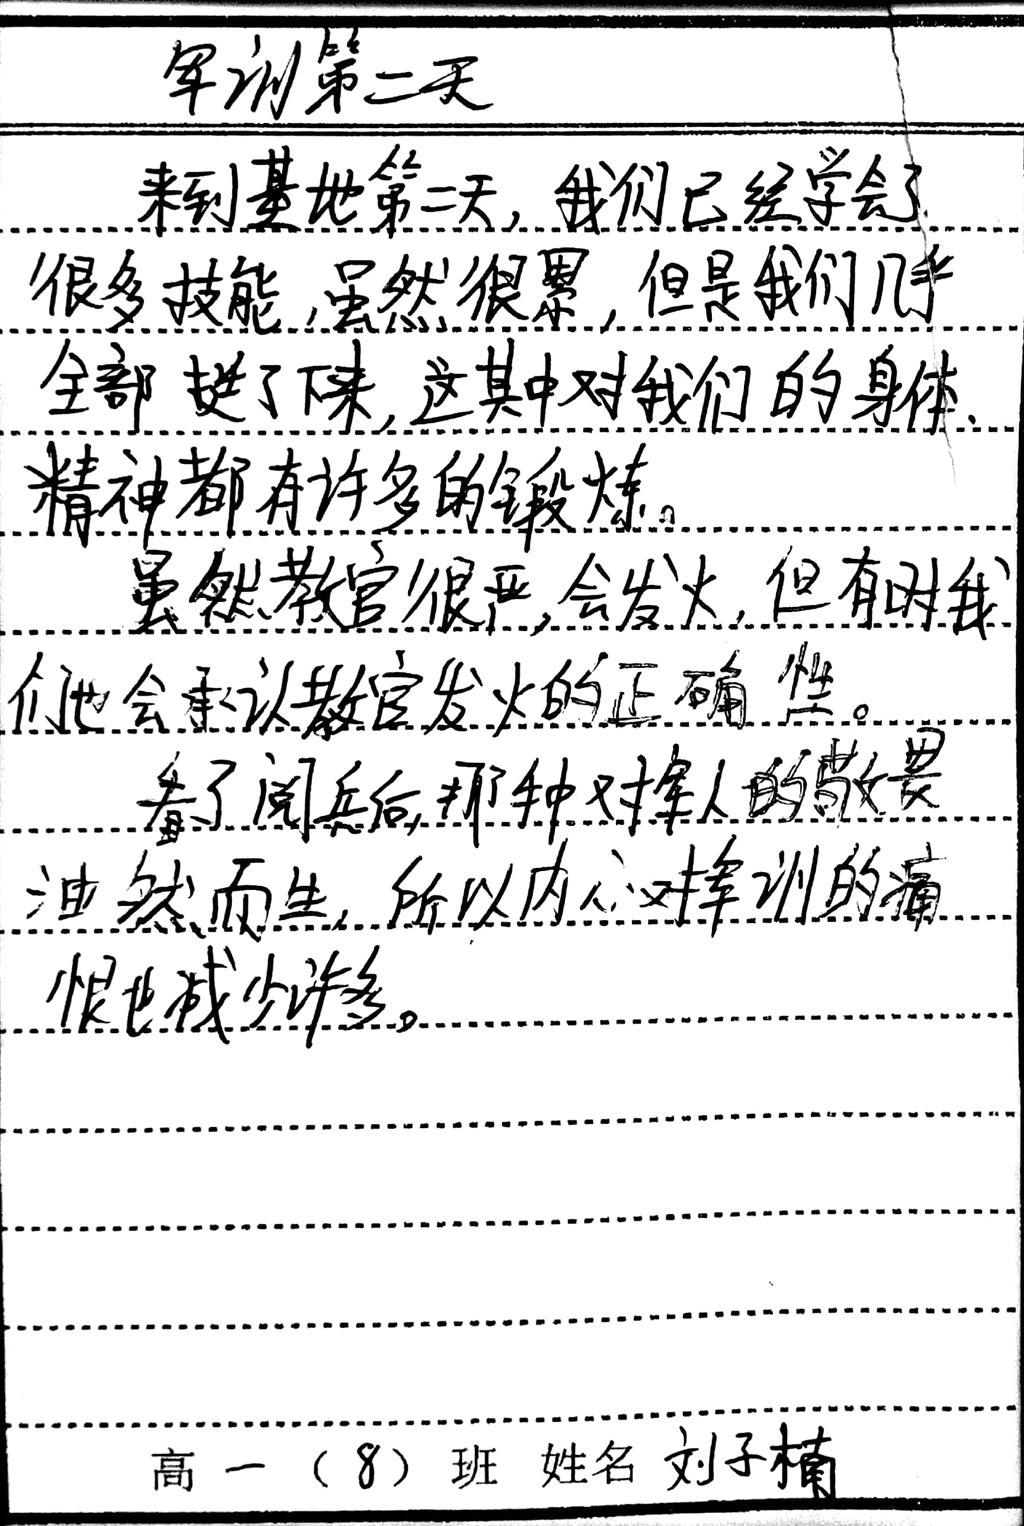 军训第二天
来到基地第二天，我们已经学会了
很多技能，虽然很累，但是我们几乎
全部挺了下来，这其中对我们的身体、
精神都有许多的锻炼。
虽然教官很严，会发火，但有时我
们也会承认教官发火的正确性。
看了阅兵后，那种对军人的敬畏
油然而生，所以内心对军训的痛
恨也减少许多。
高一（8）班 姓名 刘子楠